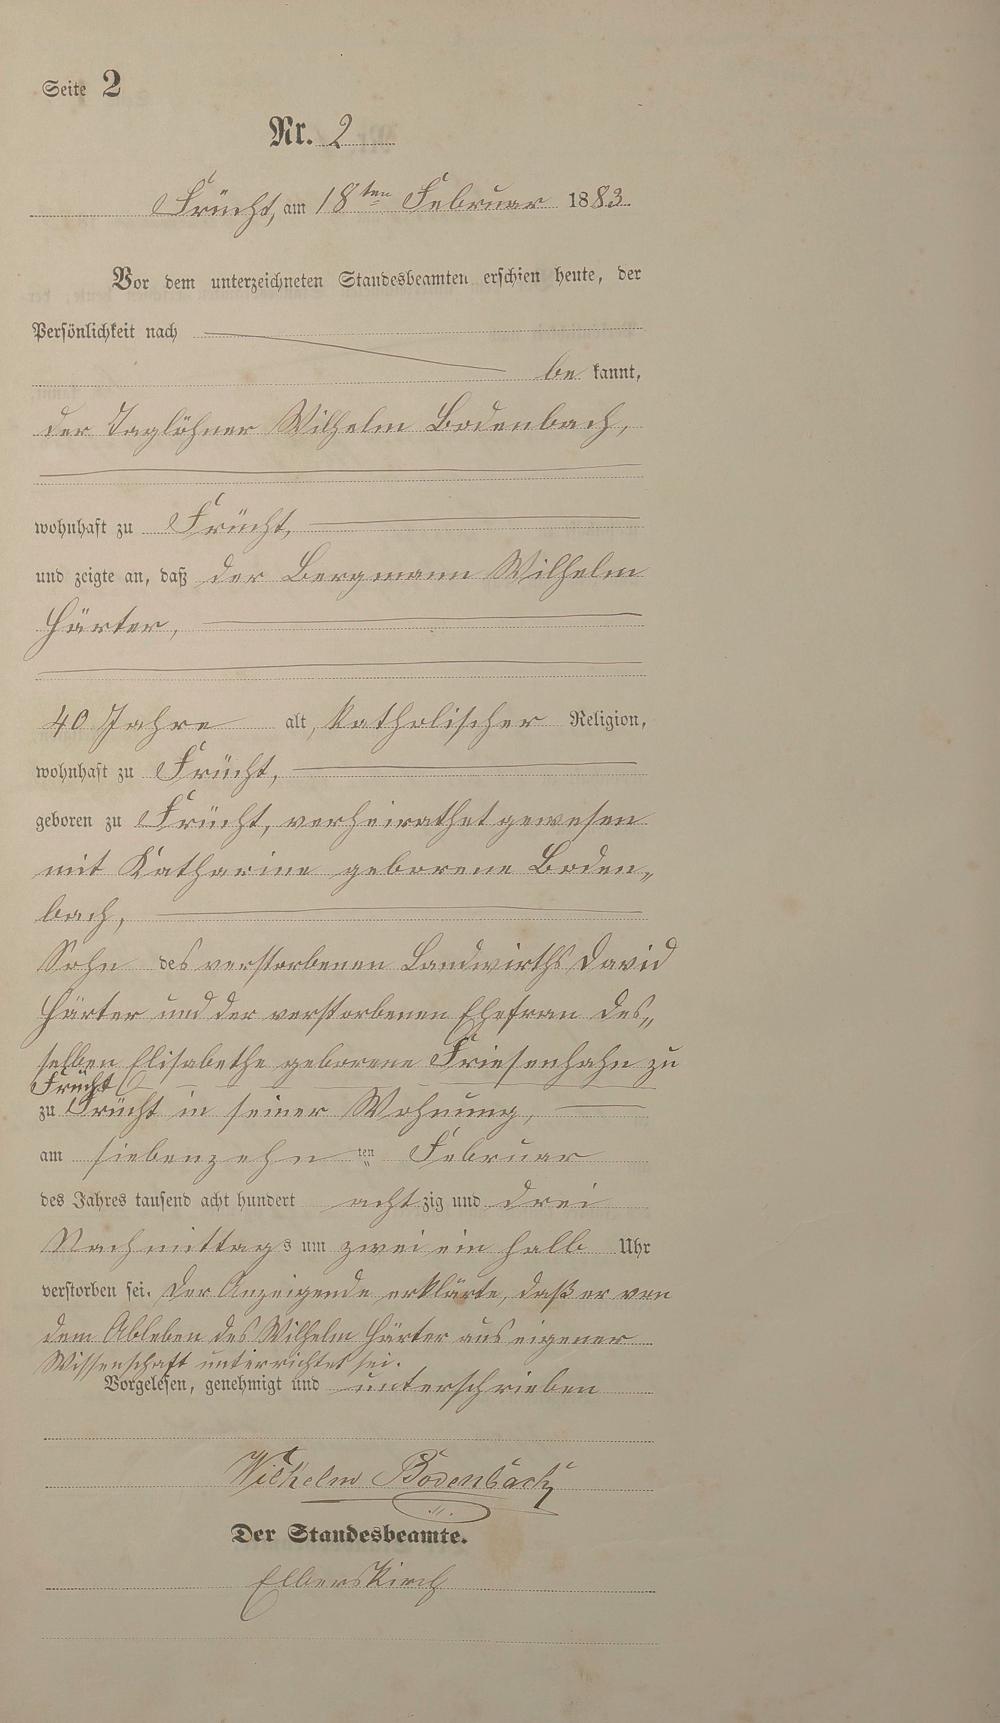 Seite 2
Nr. 2
Frücht, am 18ten Februar 1883.
Vor dem unterzeichneten Standesbeamten erschien heute, der
Persönlichkeit nach
be kannt,
der Taglöhner Wilhelm Bodenbach,
wohnhaft zu Frücht,
und zeigte an, daß der Bergmann Wilhelm
Härter,
40 Jahre alt, katholischer Religion,
wohnhaft zu Frücht,
geboren zu Frücht, verheirathet gewesen
mit Katharine geborene Boden„
bach,
Sohn des verstorbenen Landwirths David
Härter und der verstorbenen Ehefrau des„
selben Elisabethe geborene Friesenhahn zu
Frücht
zu Frücht in seiner Wohnung,
am siebenzehn ten Februar
des Jahres tausend acht hundert achtzig und drei
Nachmittags um zwei ein halb Uhr
verstorben sei. Der Anzeigende erklärte, daß er von
dem Ableben des Wilhelm Härter aus eigener
Wissenschaft unterrichtet sei.
Vorgelesen, genehmigt und unterschrieben
Wilhelm Bodenbach
Der Standesbeamte.
Elberskirch